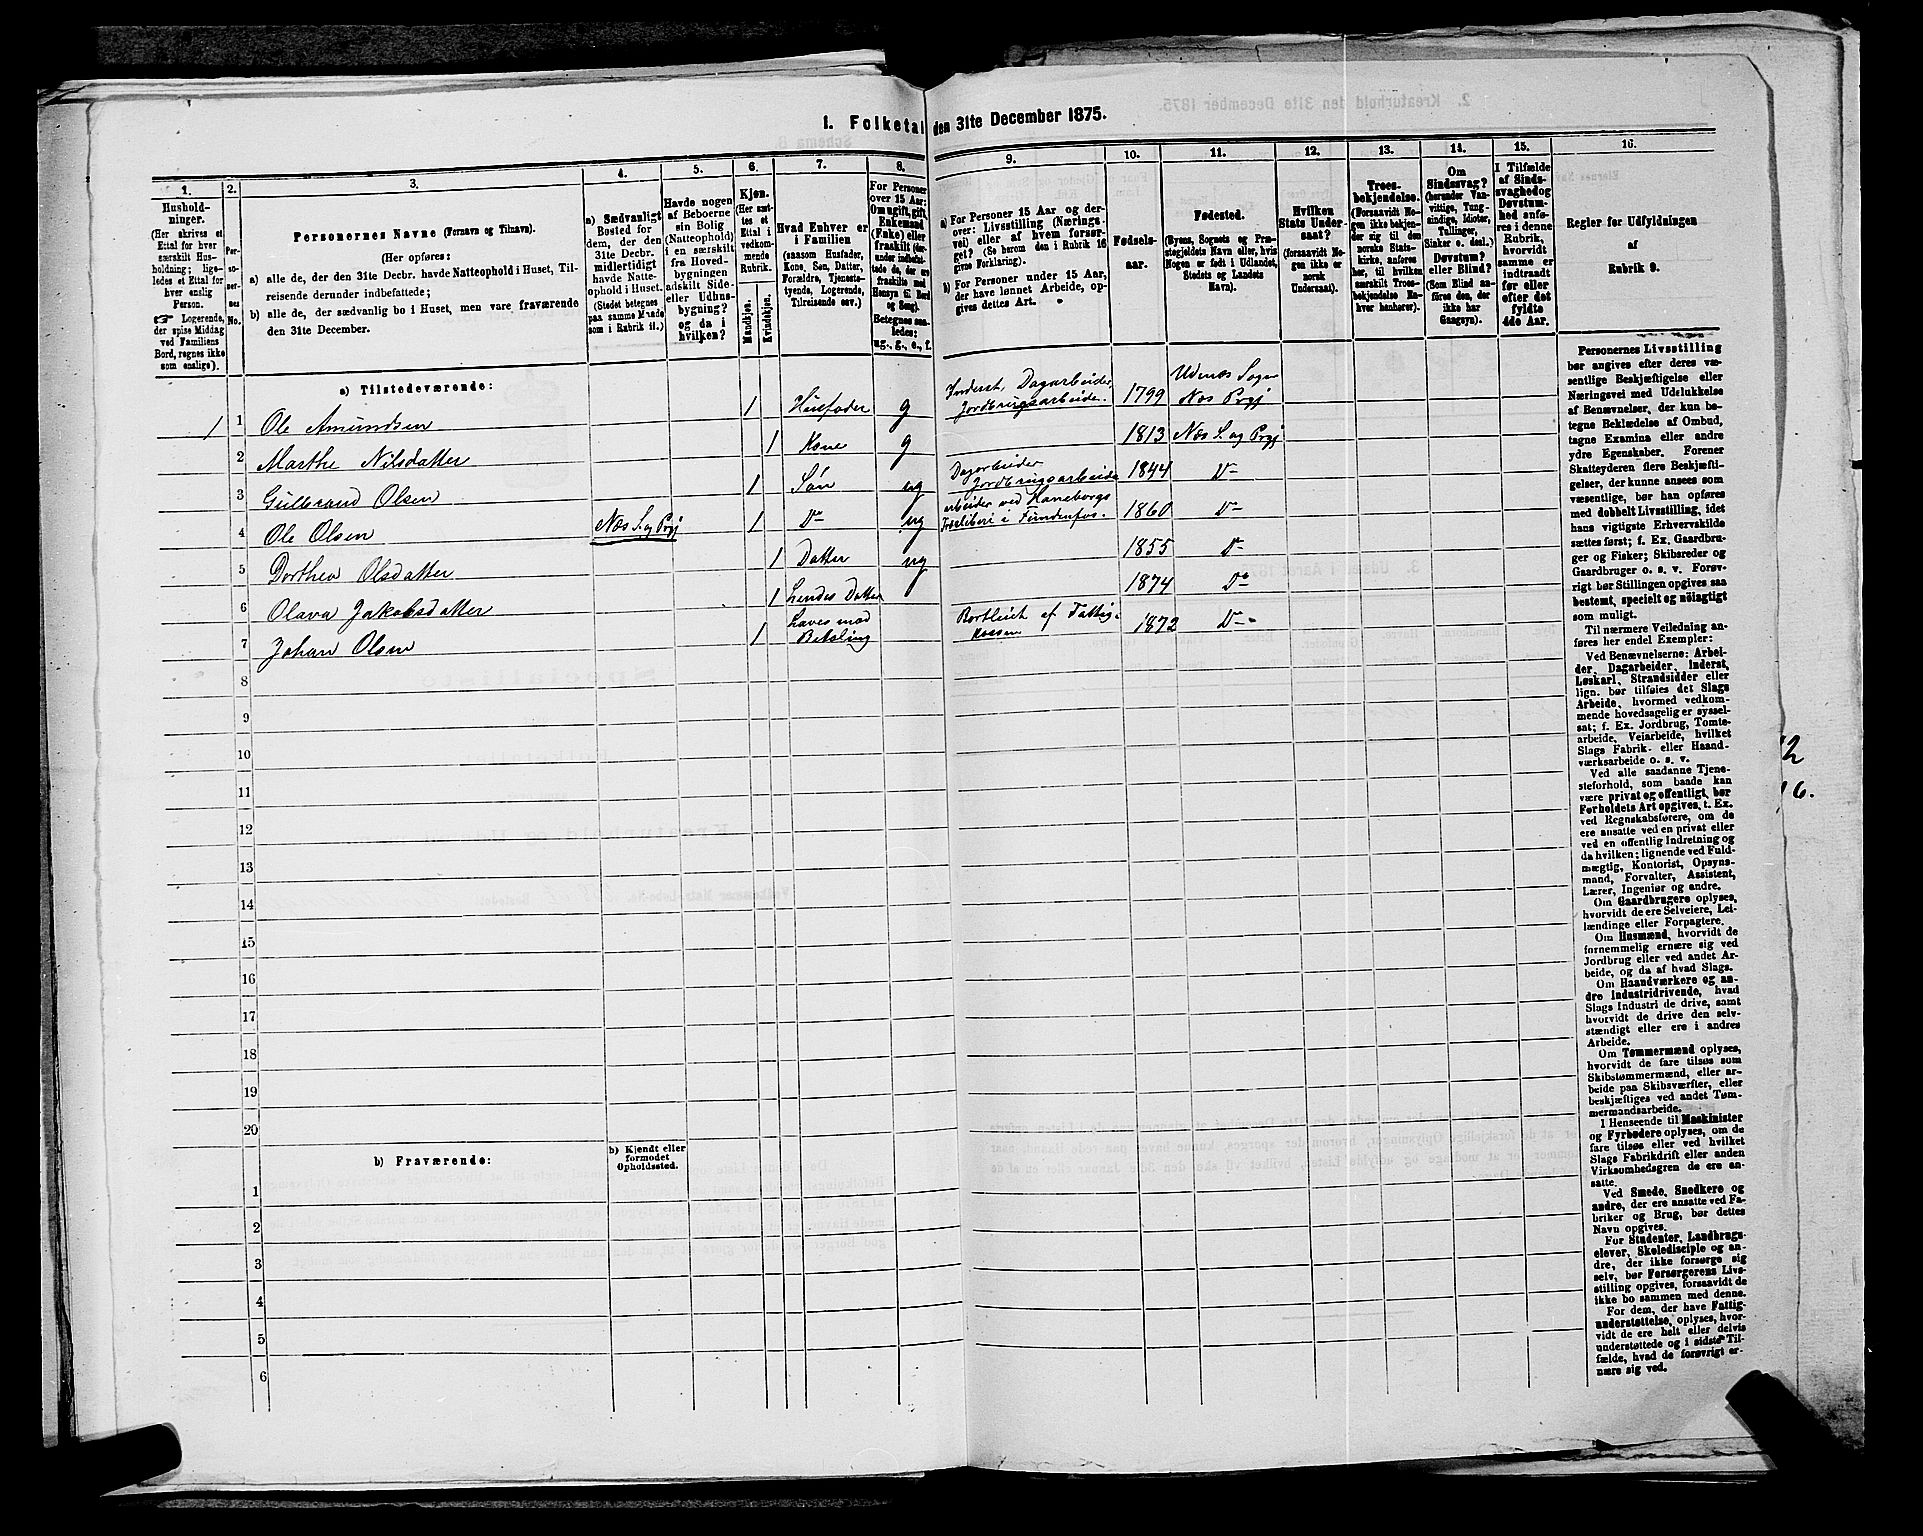 1. Folketal den 31te December 1875.
1.
2.
3.
4.
5.
6.
7.
8.
9.
10.
11.
12.
13.
14.
15.
16.
Hushold-
ninger.
(Her skrives et
Ettal for hver
særskilt Hus-
holdning; lige-
ledes et Ettal for
hver enslig
Person.
Logerende,
der spise Middag
ved Familiens
Bord, regnes ikke
som enslige).
Per-
so-
ner-
nes
No.
Personernes Navne (Fornavn og Tilnavn).
(Her opføres:
a) alle de, der den 31te Decbr. havde Natteophold i Huset, Til-
reisende derunder indbefattede;
b) alle de, der sædvanlig bo i Huset, men vare fraværende
den 31te December.
a) Sædvanligt
Bosted for
dem, der den
31te Decbr.
midlertidigt
havde Natte-
ophold i Huset.
(Stedet betegnes
paa samme Maade
som i Rubrik 11.)
Havde nogen
af Beboerne
sin Bolig
(Natteophold)
i en særskilt
fra Hoved-
bygningen
adskilt Side-
eller Udhus-
bygning?
og da i
hvilken?
Kjøn.
(Her sæt-
tes et
Ettal i
vedkom-
mende
Rubrik.
Mandkjøn.
Kvindekjøn.
Hvad Enhver er
i Familien
(saasom Husfader,
Kone, Søn, Datter,
Forældre, Tjeneste-
tyende, Logerende,
Tilreisende osv.)
For Personer
over 15 Aar:
Om ugift, gift,
Enkemand
(Enke) eller
fraskilt (der-
under indbefat-
tede de, der ere
fraskilte med
Hensyn til Bord
og Seng).
Betegnes saa-
ledes:
ug., g., e., f.
a) For Personer 15 Aar og der-
over: Livsstilling (Nærings-
vei) eller af hvem forsør-
get? (Se herom den i Rubrik 16
givne Forklaring).
b) For Personer under 15 Aar,
der have lønnet Arbeide, op-
gives dettes Art.
Fødsels-
aar.
Fødested.
(Byens, Sognets og Præ-
stegjeldets Navn eller, hvis
Nogen er født i Udlandet,
Stedets og Landets
Navn).
Hvilken
Stats Under-
saat?
(forsaavidt No-
gen ikke er
norsk
Undersaat).
Troes-
bekjendelse.
(Forsaavidt No-
gen ikke bekjen-
der sig til den
norske Stats-
kirke, anføres
her, til hvilken
særskilt Troes-
bekjendelse En-
hver henhører).
Om
Sindssvag?
(herunder Van-
vittige, Tung-
sindige, Idioter,
Tullinger,
Sinker o. desl.)
Døvstum?
eller Blind?
(Som Blind an-
føres den, der
ikke har
Gangsyn).
I Tilfælde
af Sinds-
svaghed og
Døvstum-
hed anfø-
res i denne
Rubrik,
hvorvidt
samme er
indtraadt
før eller
efter det
fyldte
4de Aar.
Regler for Udfyldningen
af
Rubrik 9.
a) Tilstedeværende:
1 1 Ole Amundsen 1 Husfader g Inderst, Dagarbeider, Jordbrugsarbeide. 1799 Udenæs Sogn Næs Prgj
2 Marthe Nilsdatter 1 Kone g 1813 Næs S. og Prgj
3 Gulbrand Olsen 1 Søn ug Dagarbeider Jordbrugsarbeide 1844 Do
4 Ole Olsen Næs S. og Prgj 1 Do ug arbeider ved Haneborgs i Fundenfos. 1860 Do
5 Dorthea Olsdatter 1 Datter ug 1855 Do
6 Olava Jakobsdatter 1 Hendes Datter 1874 Do
7 Johan Olsen 1 Haves mod Betaling Bortleiet af Fattigkassen 1872 Do
8
9
10
11
12
13
14
15
16
17
18
19
20
b) Fraværende:
b) Kjendt eller
formodet
Opholdssted.
1
2
3
4
5
6
Personernes Livsstilling
bør angives efter deres væ-
sentlige Beskjæftigelse eller
Næringsvei med Udelukkelse
af Benævnelser, der kun be-
tegne Beklædelse af Ombud,
tagne Examina eller andre
ydre Egenskaber. Forener
Skatteyderen flere Beskjæfti-
gelser, der kunne ansees som
væsentlige, bør han opføres
med dobbelt Livsstilling, idet
hans vigtigste Erhvervskilde
sættes først; f. Ex. Gaardbru-
ger og Fisker; Skibsreder og
Gaardbruger o. s. v. Forøv-
rigt bør Stillingen opgives saa
bestemt, specielt og nöiagtigt
som muligt.
Til nærmere Veiledning an-
føres her endel Exempler:
Ved Benævnelserne: Arbei-
der, Dagarbeider, Inderst,
Løskarl, Strandsidder eller
lign. bør tilføies det Slags
Arbeide, hvormed vedkom-
mende hovedsagelig er syssel-
sat; f. Ex. Jordbrug, Tomte-
arbeide, Veiarbeide, hvilket
Slags Fabrik- eller Haand-
værksarbeide o. s. v.
Ved alle saadanne Tjene-
steforhold, som baade kan
være privat og offentligt, bør
Forholdets Art opgives, f. Ex.
ved Regnskabsførere, om de
ere ansatte ved en privat eller
ved en offentlig Indretning og
da hvilken; lignende ved Fuld-
mægtig, Kontorist, Opsyns-
mand, Forvalter, Assistent,
Lærer, Ingeniør og andre.
Om Gaardbrugere oplyses,
hvorvidt de ere Selveiere, Lei-
lændinge eller Forpagtere.
Om Husmænd, hvorvidt de
fornemmelig ernære sig ved
Jordbrug eller ved andet Ar-
beide, og da af hvad Slags.
Om Haandværkere og an-
dre Industridrivende, hvad
Slags Industri de drive, samt
hvorvidt de drive den selv-
stændigt eller ere i andres
Arbeide.
Om Tømmermænd oplyses,
hvorvidt de fare tilsøs som
Skibstømmermænd, eller ar-
beide paa Skibsværfter, eller
beskjæftiges ved andet Tøm-
mermandsarbeide.
I Henseende til Maskinister
og Fyrbødere oplyses, om de
fare tilsøs eller ved hvilket
Slags Fabrikdrift eller anden
Virksomhedsgren de ere an-
satte.
Ved Smede, Snedkere og
andre, der ere ansatte ved Fa-
briker og Brug, bør dettes
Navn opgives.
For Studenter, Landbrugs-
elever, Skoledisciple og an-
dre, der ikke forsørge sig
selv, bør Forsørgerens Livs-
stilling opgives, forsaavidt de
ikke bo sammen med denne.
For dem, der have Fattig-
understøttelse, oplyses, hvor-
vidt de ere helt eller delvis
understøttede og i sidste Til-
fælde, hvad de forøvrigt er-
nære sig ved.